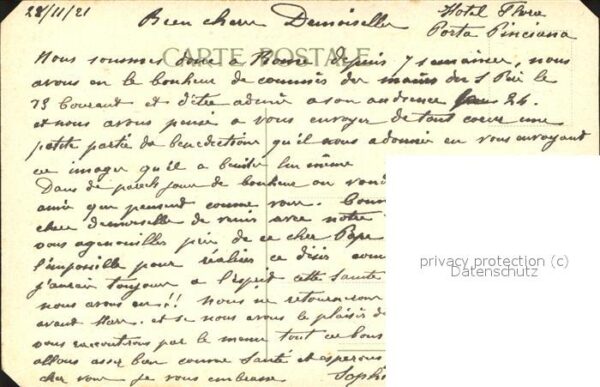 28/11/21 Bien chere Demoiselle Hotel Flora
Porta Pinciana
CARTE POSTALE
Nous sommes donc a Rome depuis 7 semaines, nous
avons eu le bonheur de des mains du S le
23 Courant et d'être admis a son audience 24.
et nous avons pensé a vous envoyer de tout coeur une
petite partie da benedictions qu'il nous a en vous envoyant
ce image qu'il a lui même
Dans de pareils jour de bonheur on
amie qui pensent comme vous.
chere demoiselle de venir avec notre
vous agenouiller près de ce cher Pape
l'impossible pour réaliser ce
j'aurai toujour a l'esprit cette Sainte
nous avons eu!! Nous ne retournerons
avant Mars. et si nous avons le plaisir d
vous par le menu tout ce bons
allons assez bien comme Santé et esperons
cher vous je vous embrasse Soph
privacy protection (c)
Datenschutz